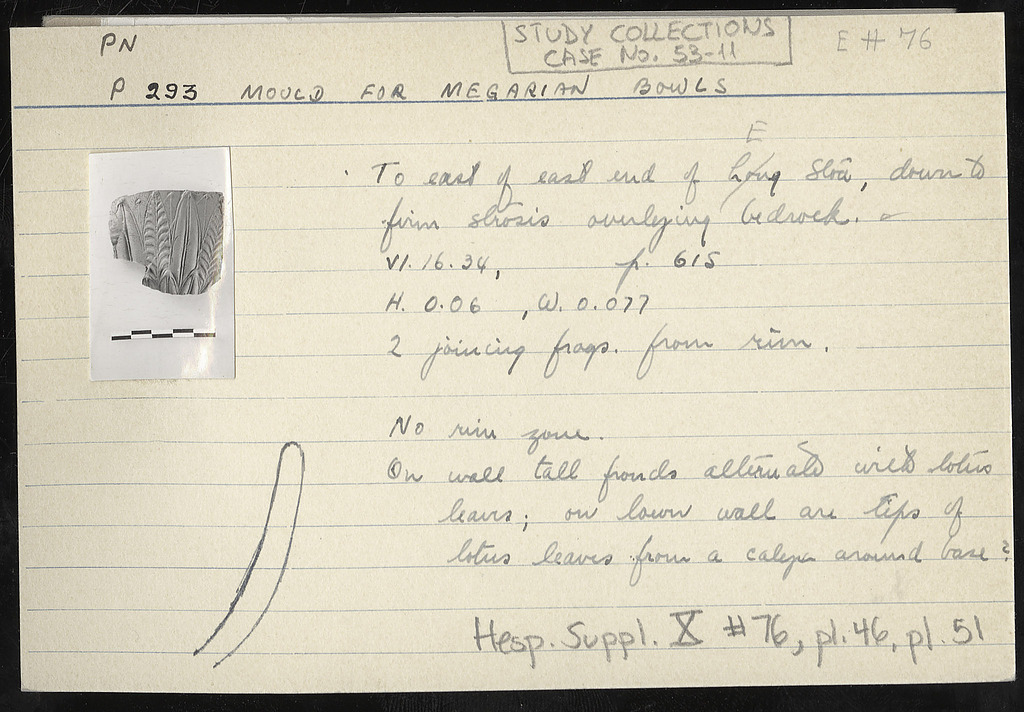 PN
STUDY COLLECTIONS
CASE No. 53-11
E # 76
P 293 MOULD FOR MEGARIAN BOWLS
E
To east of east end of Long Stoa, down to
firm strosis overlying bedrock.
VI.16.34, p. 615
H. 0.06 , W. 0.077
2 joining frags. from rim.
No rim zone.
On wall tall fronds alternate with lotus
leaves; on lower wall are tips of
lotus leaves from a calyx around base?
Hesp. Suppl. X #76, pl.46, pl. 51